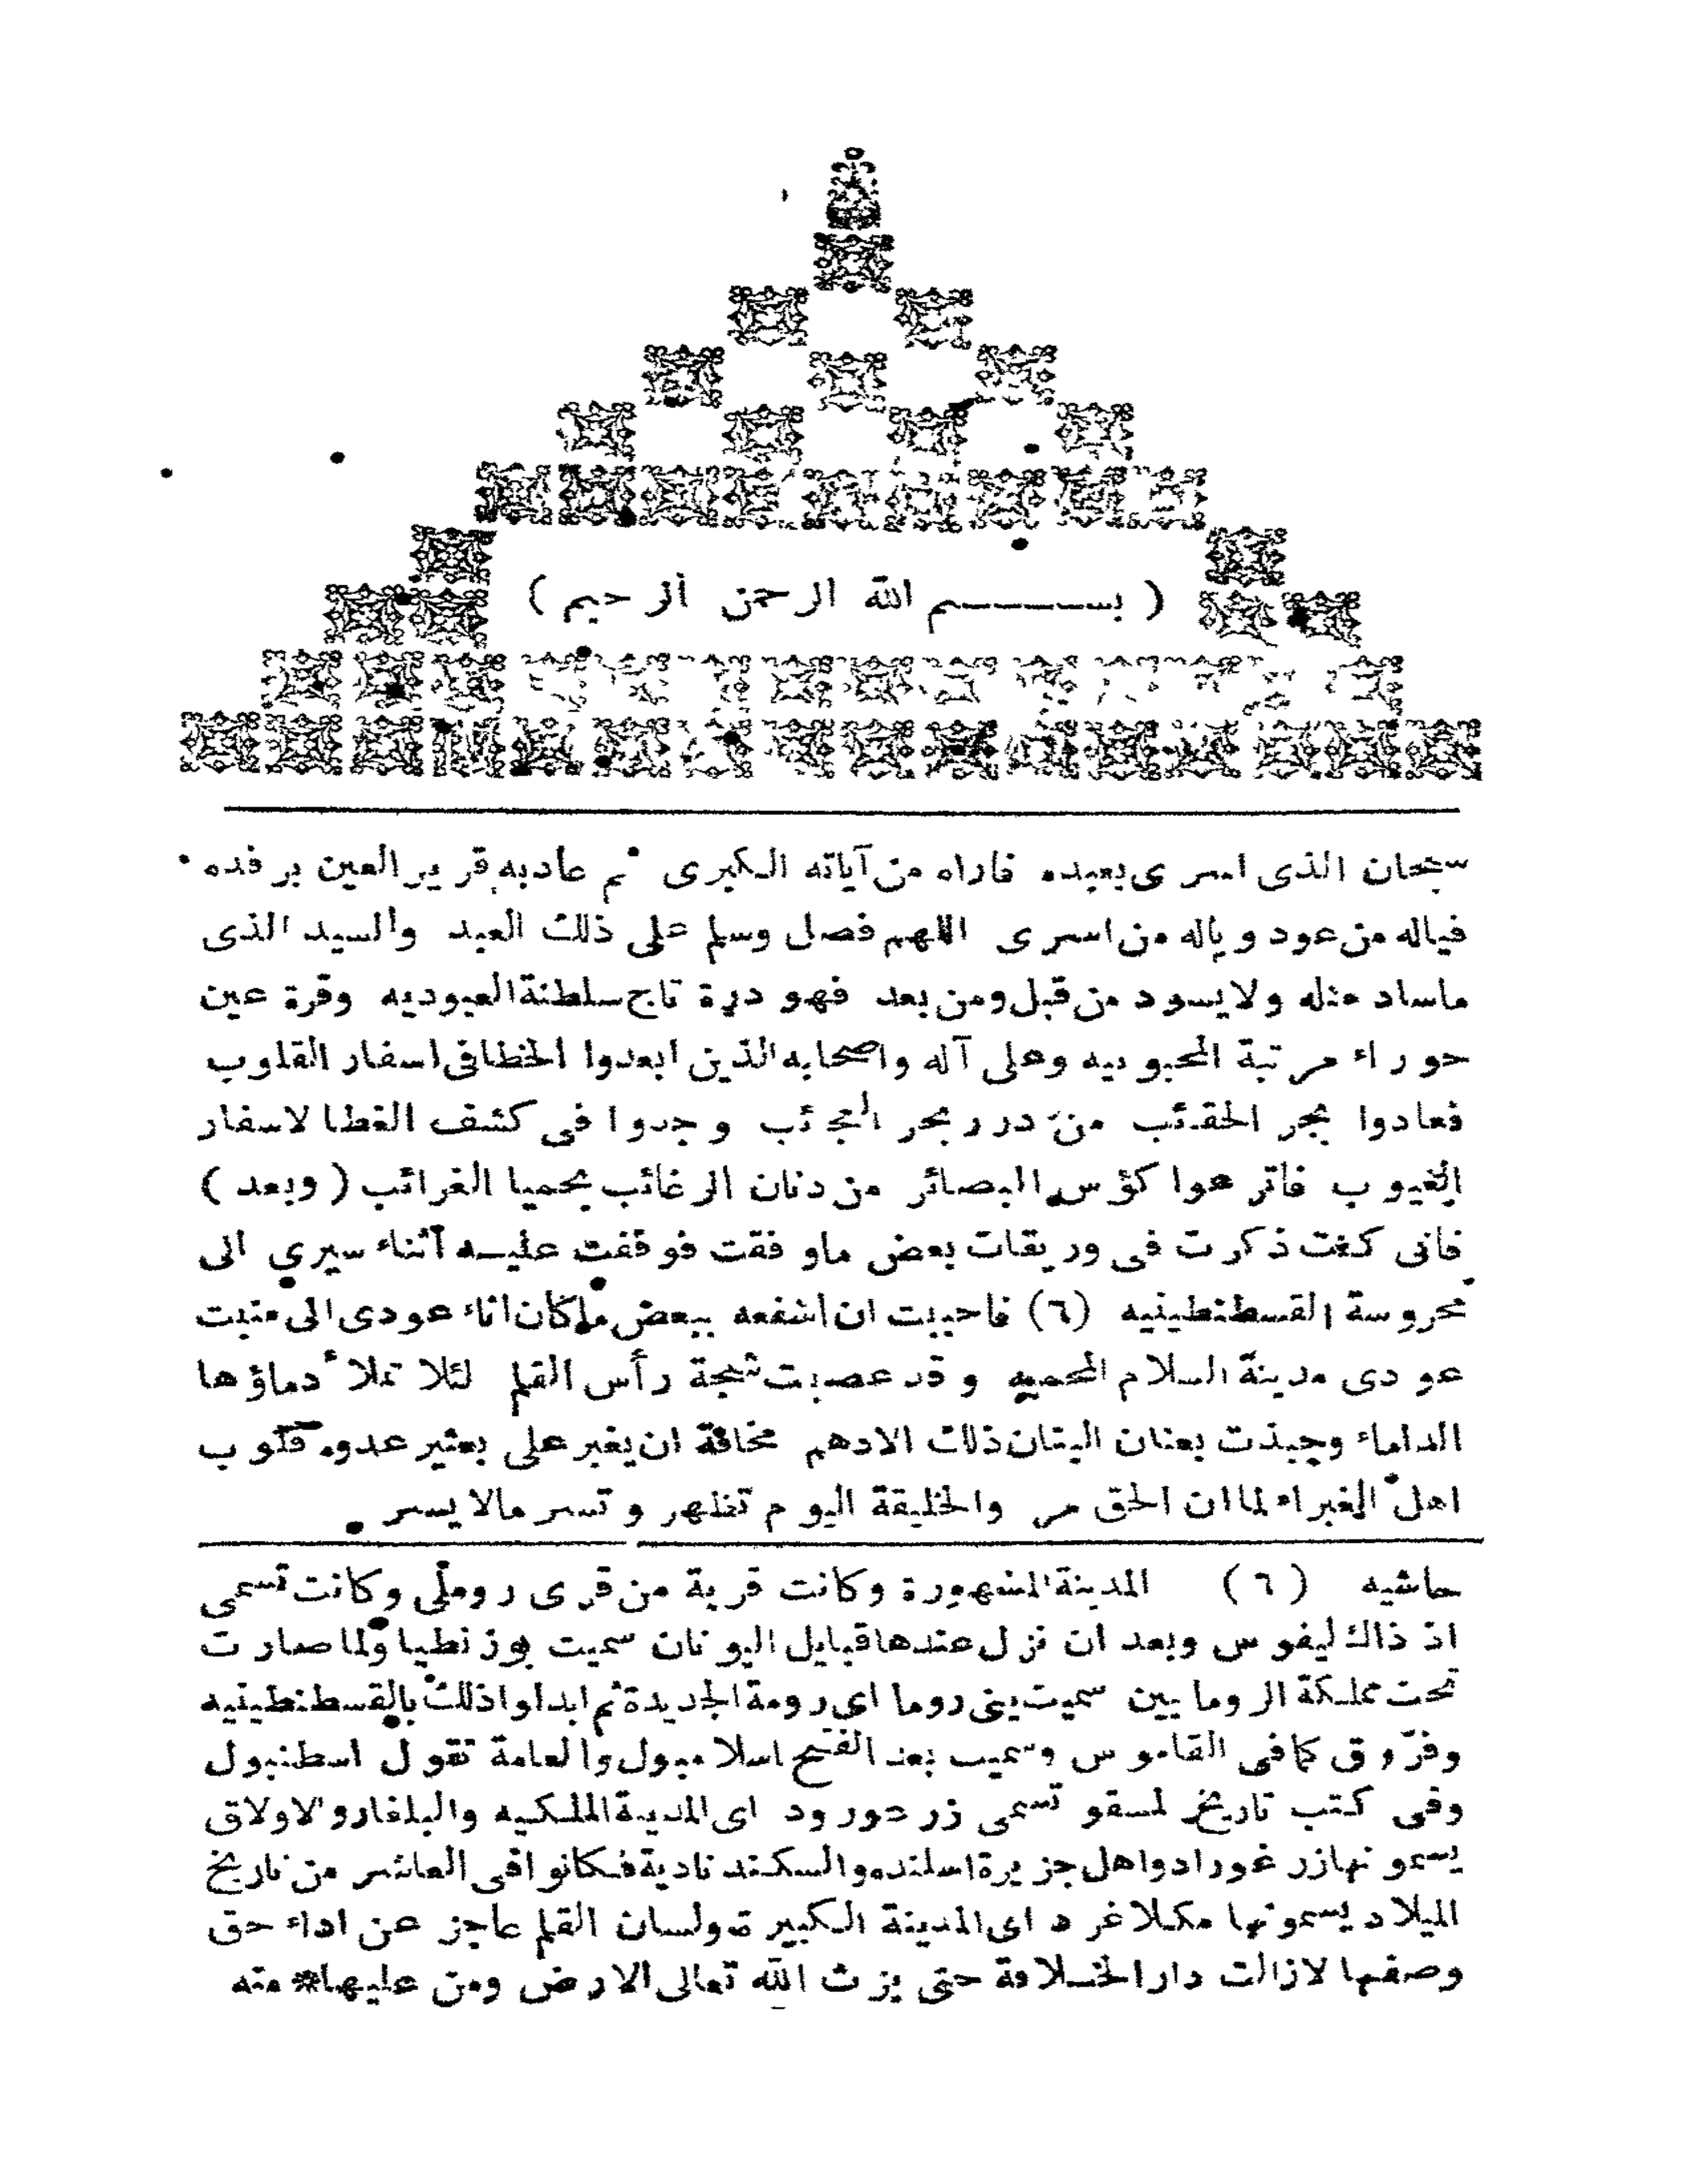 ( بســـــم الله الرحمن الرحيم )
سبحان الذى اسرى بعبده فاراه من آياته الكبرى ثم عاد به قرير العين برفده
فياله من عود وياله من اسرى اللهم فصل وسلم على ذلك العبد والسيد الذى
ماساد مثله ولا يسود من قبل ومن بعد فهو درة تاج سلطنة العبوديه وقرة عين
حوراء مرتبة المحبوبيه وعلى آله واصحابه الذين ابعدوا الخطا فى اسفار القلوب
فعادوا بجر الحقائب من درر بحر العجائب وجدوا فى كشف الغطا لاسفار
الغيوب فاترعوا كؤس البصائر من دنان الرغائب بحميا الغرائب ( وبعد )
فانى كنت ذكرت فى وريقات بعض ماوفقت فوقفت عليه آثناء سيري الى
محروسة القسطنطينيه (٦) فاحببت ان اشفعه ببعض ماكان اناء عودى الى منبت
عودى مدينة السلام المحميه وقد عصبت شجة رأس القلم لئلا تملأ دماؤها
الداماء وجبذت بعنان البنان ذلك الادهم مخافة ان يغبر على بعثير عدوه قلوب
اهل الغبراء لما ان الحق مر والخليقة اليوم تظهر وتسر مالا يسر
حاشيه (٦) المدينة المشهورة وكانت قرية من قرى روملى وكانت تسمى
اذ ذاك ليفوس وبعد ان نزل عندها قبايل اليونان سميت بوزنطيا ولما صارت
تحت مملكة الروماييين سميت ينى روما اى رومة الجديدة ثم ابدلوا ذلك بالقسطنطينيه
وفرّوق كما فى القاموس وسميت بعد الفتح اسلامبول والعامة تقول اسطنبول
وفى كتب تاريخ لمسقو تسمى زر حورود اى المدينة الملكيه والبلغار والاولاق
يسمونها زر غوراد واهل جزيرة اسلنده والسكندناديه فكانوا فى العاشر من تاريخ
الميلاد يسمونها مكلاغرد اى المدينة الكبيرة ولسان القلم عاجز عن اداء حق
وصفها لازالت دار الخلافة حتى يرث الله تعالى الارض ومن عليها* منه